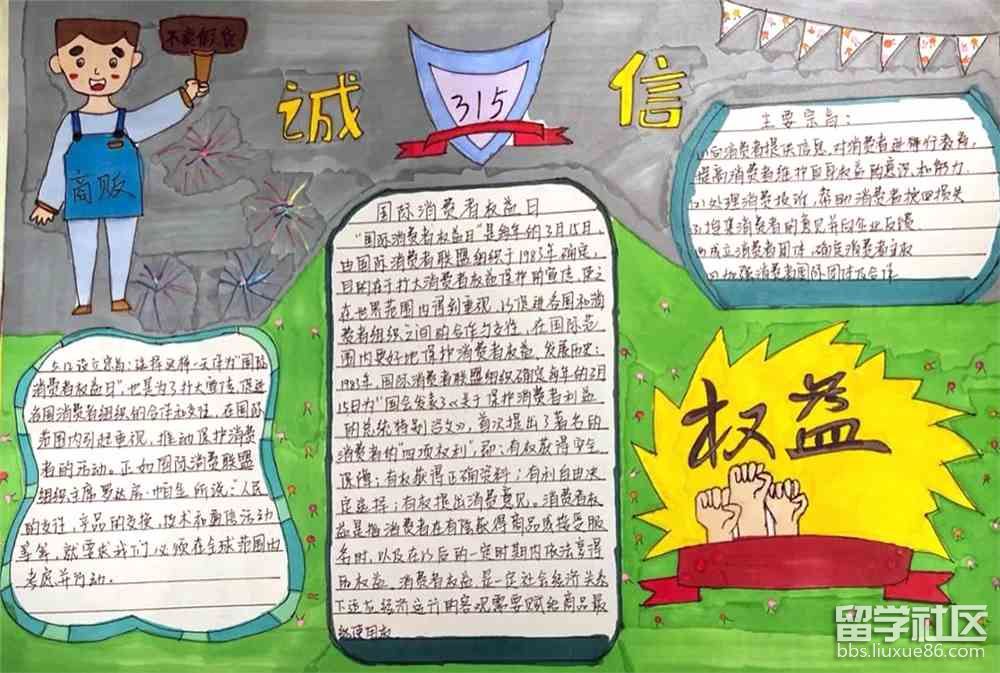 不卖假货
诚
315
信
商贩
主要宗旨：
(1)向消费者提供信息，对消费者进行教育，
提高消费者维护自身权益的意识和能力.
(2)处理消费投诉，帮助消费者挽回损失
(3)搜集消费者的意见并向企业反馈
(4)成立消费者团体，确定消费者主权
(5)加强消费者国际团体及合作
国际消费者权益日
"国际消费者权益日"是每年的3月15日，
由国际消费者联盟组织于1983年确定，
目的在于扩大消费者权益保护的宣传，使之
在世界范围内得到重视，以促进各国和消
费者组织之间的合作与交往，在国际范
围内更好地保护消费者权益。发展历史：
1983年，国际消费者联盟组织确定每年的3月
15日为"国会发表了《关于保护消费者利益
的总统特别咨文》，首次提出了著名的
消费者的"四项权利"，即：有权获得安全
保障；有权获得正确资料；有利自由决
定选择；有权提出消费意见。消费者权
益是指消费者在有偿获得商品或接受服
务时，以及在以后的一定时期内依法享得
的权益。消费者权益是一定社会经济关系
下适应经济运行的客观需要赋给商品最
终使用者
3.15设立宗旨：选择这样一天作为"国际
消费者权益日"，也是为了扩大宣传，促进
各国消费者组织的合作和交往，在国际
范围内引起重视，推动保护消费
者的活动。正如国际消费联盟
组织主席罗达房·帕尔所说："人民
的支付，产品的交换，技术和通信活动
等等，就要求我们必须在全球范围内
考虑并行动。
权益
留学社区
bbs.liuxue86.com